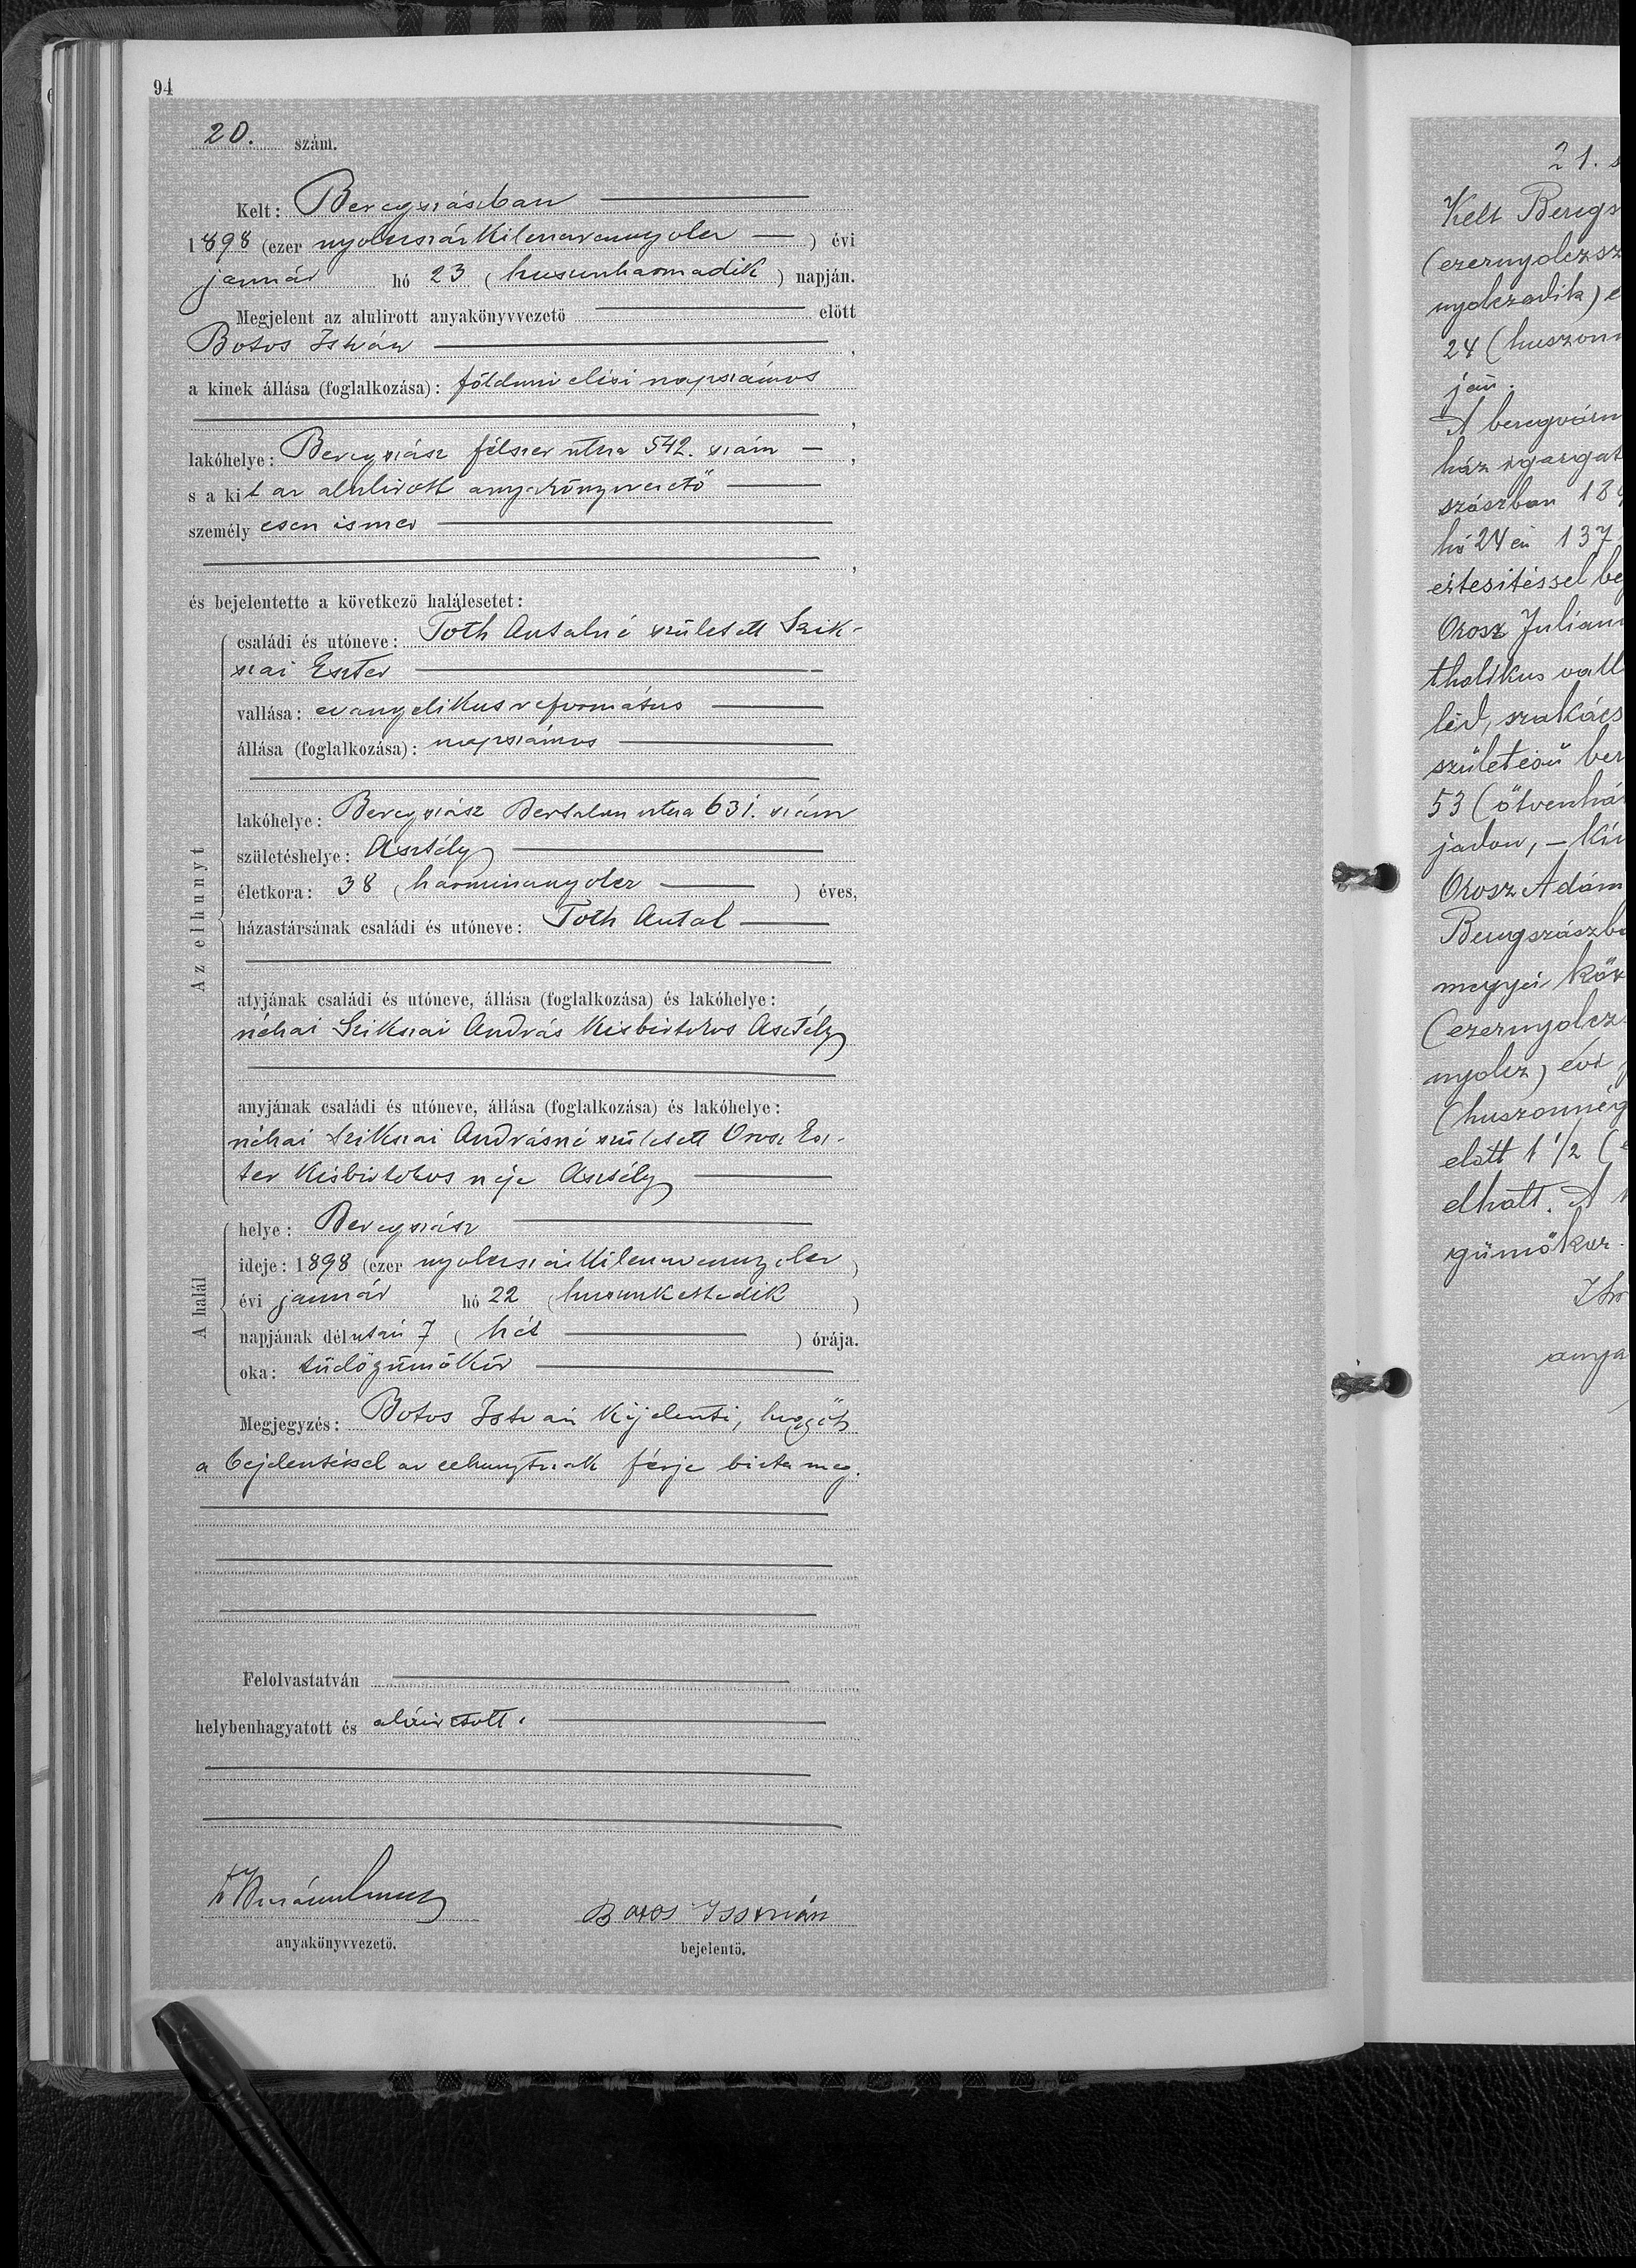 94
20. szám.
Kelt: Beregszászban
1898 (ezer nyolczszázkilenczvennyolcz) évi
január hó 23 (huszonharmadik) napján.
Megjelent az alulirott anyakönyvvezető előtt
Botos István,
a kinek állása (foglalkozása): földmivelési napszámos
,
lakóhelye: Beregszász félszer utcza 542. szám,
s a kit az alulirott anyakönyvvezető
személyesen ismer
,
és bejelentette a következő halálesetet:
Az elhunyt
családi és utóneve: Toth Antalné született Szik-
szai Eszter
vallása: evangelikus református
állása (foglalkozása): napszámos
lakóhelye: Beregszász Bertalan utcza 631. szám
születéshelye: Asztély
életkora: 38 (harmincznyolcz) éves,
házastársának családi és utóneve: Toth Antal
atyjának családi és utóneve, állása (foglalkozása) és lakóhelye:
néhai Szikszai András Kisbirtokos Asztély
anyjának családi és utóneve, állása (foglalkozása) és lakóhelye:
néhai Szikszai Andrásné született Orosz Esz-
ter Kisbirtokos neje Asztély
A halál
helye: Beregszász
ideje: 1898 (ezer nyolczszázkilenczvennyolcz)
évi január hó 22 (huszonkettedik)
napjának délután 7 (hét) órája.
oka: tüdőgümőkór
Megjegyzés: Botos István kijelenti, hogy őt
a bejelentéssel az elhunytnak férje bizta meg.
Felolvastatván
helybenhagyatott és aláiratott.
Botos Isstván
anyakönyvvezető.
bejelentő.
21. s
Kelt Beregs
(ezernyolczsz
nyolczadik) é
24 (huszonn
ján.
A beregvárm
ház igazgat
szászban 189
hó 24 én 137
értesitéssel be
Orosz Juliann
tholikus vall
léd, szakács
születésű ber
53 (ötvenhár
jadon, – kin
Orosz Ádám
Beregszászba
megyei köz
(ezernyolcz
nyolcz) évi j
(huszonnég
előtt 1 1/2 (
elhalt. A
gümőkor.
anya